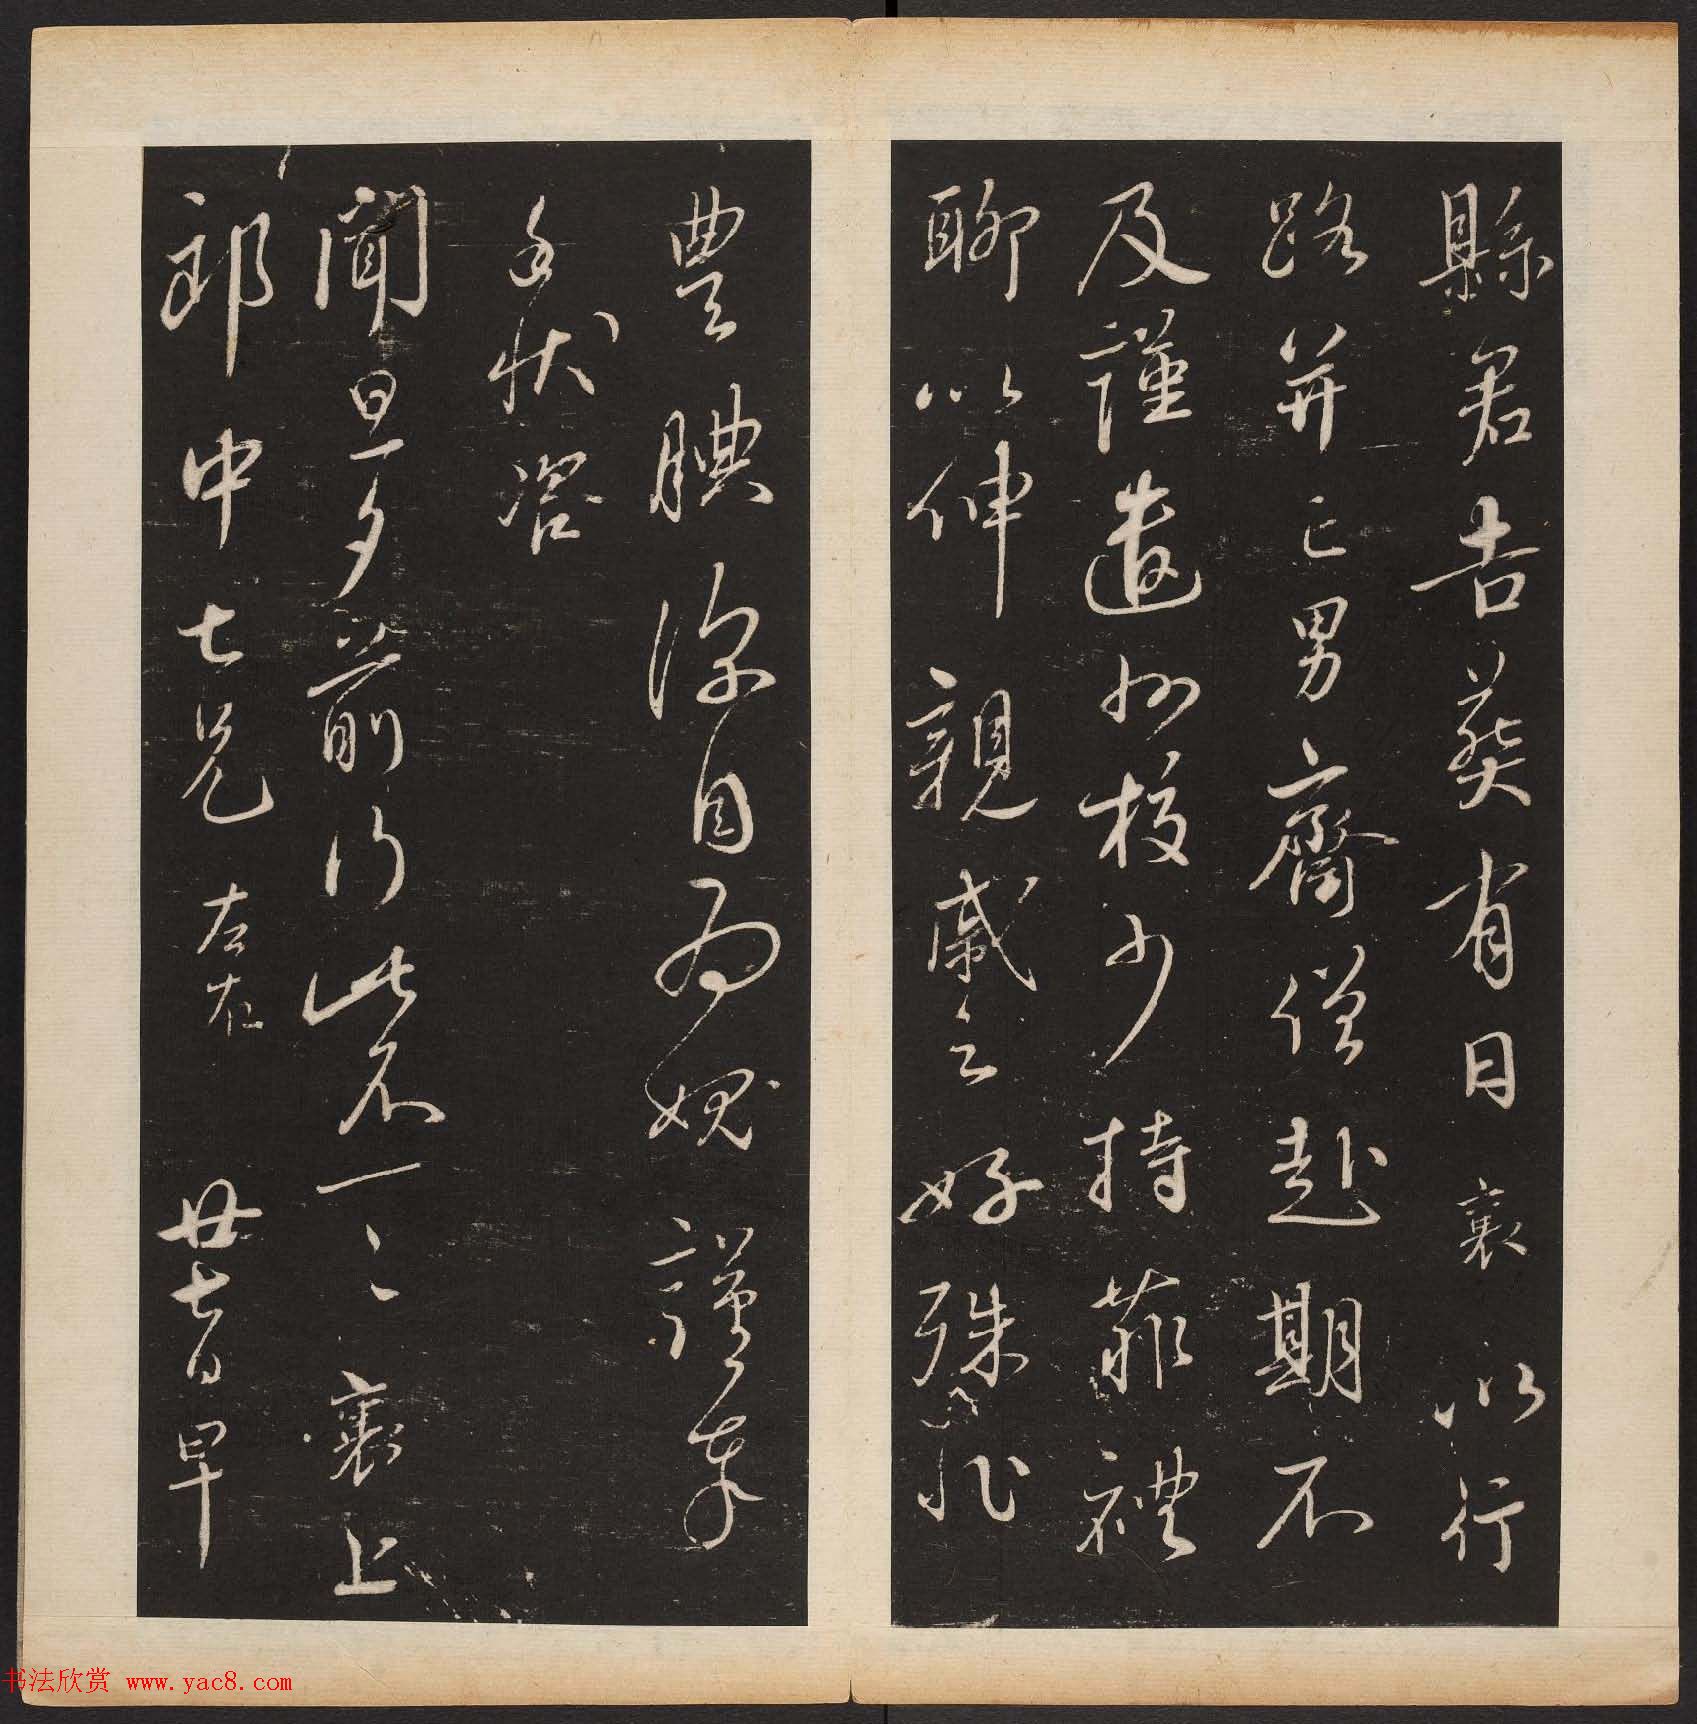 縣君吉葬有日襄以行
路并亡男齋僧赴期不
及謹遣州校少持菲禮
聊以伸親戚之好殊非
豊腆深自為愧謹奉
手狀咨
聞旦夕前行此不一〻襄上
郎中七兄左右 廿七日早
书法欣赏 www.yac8.com